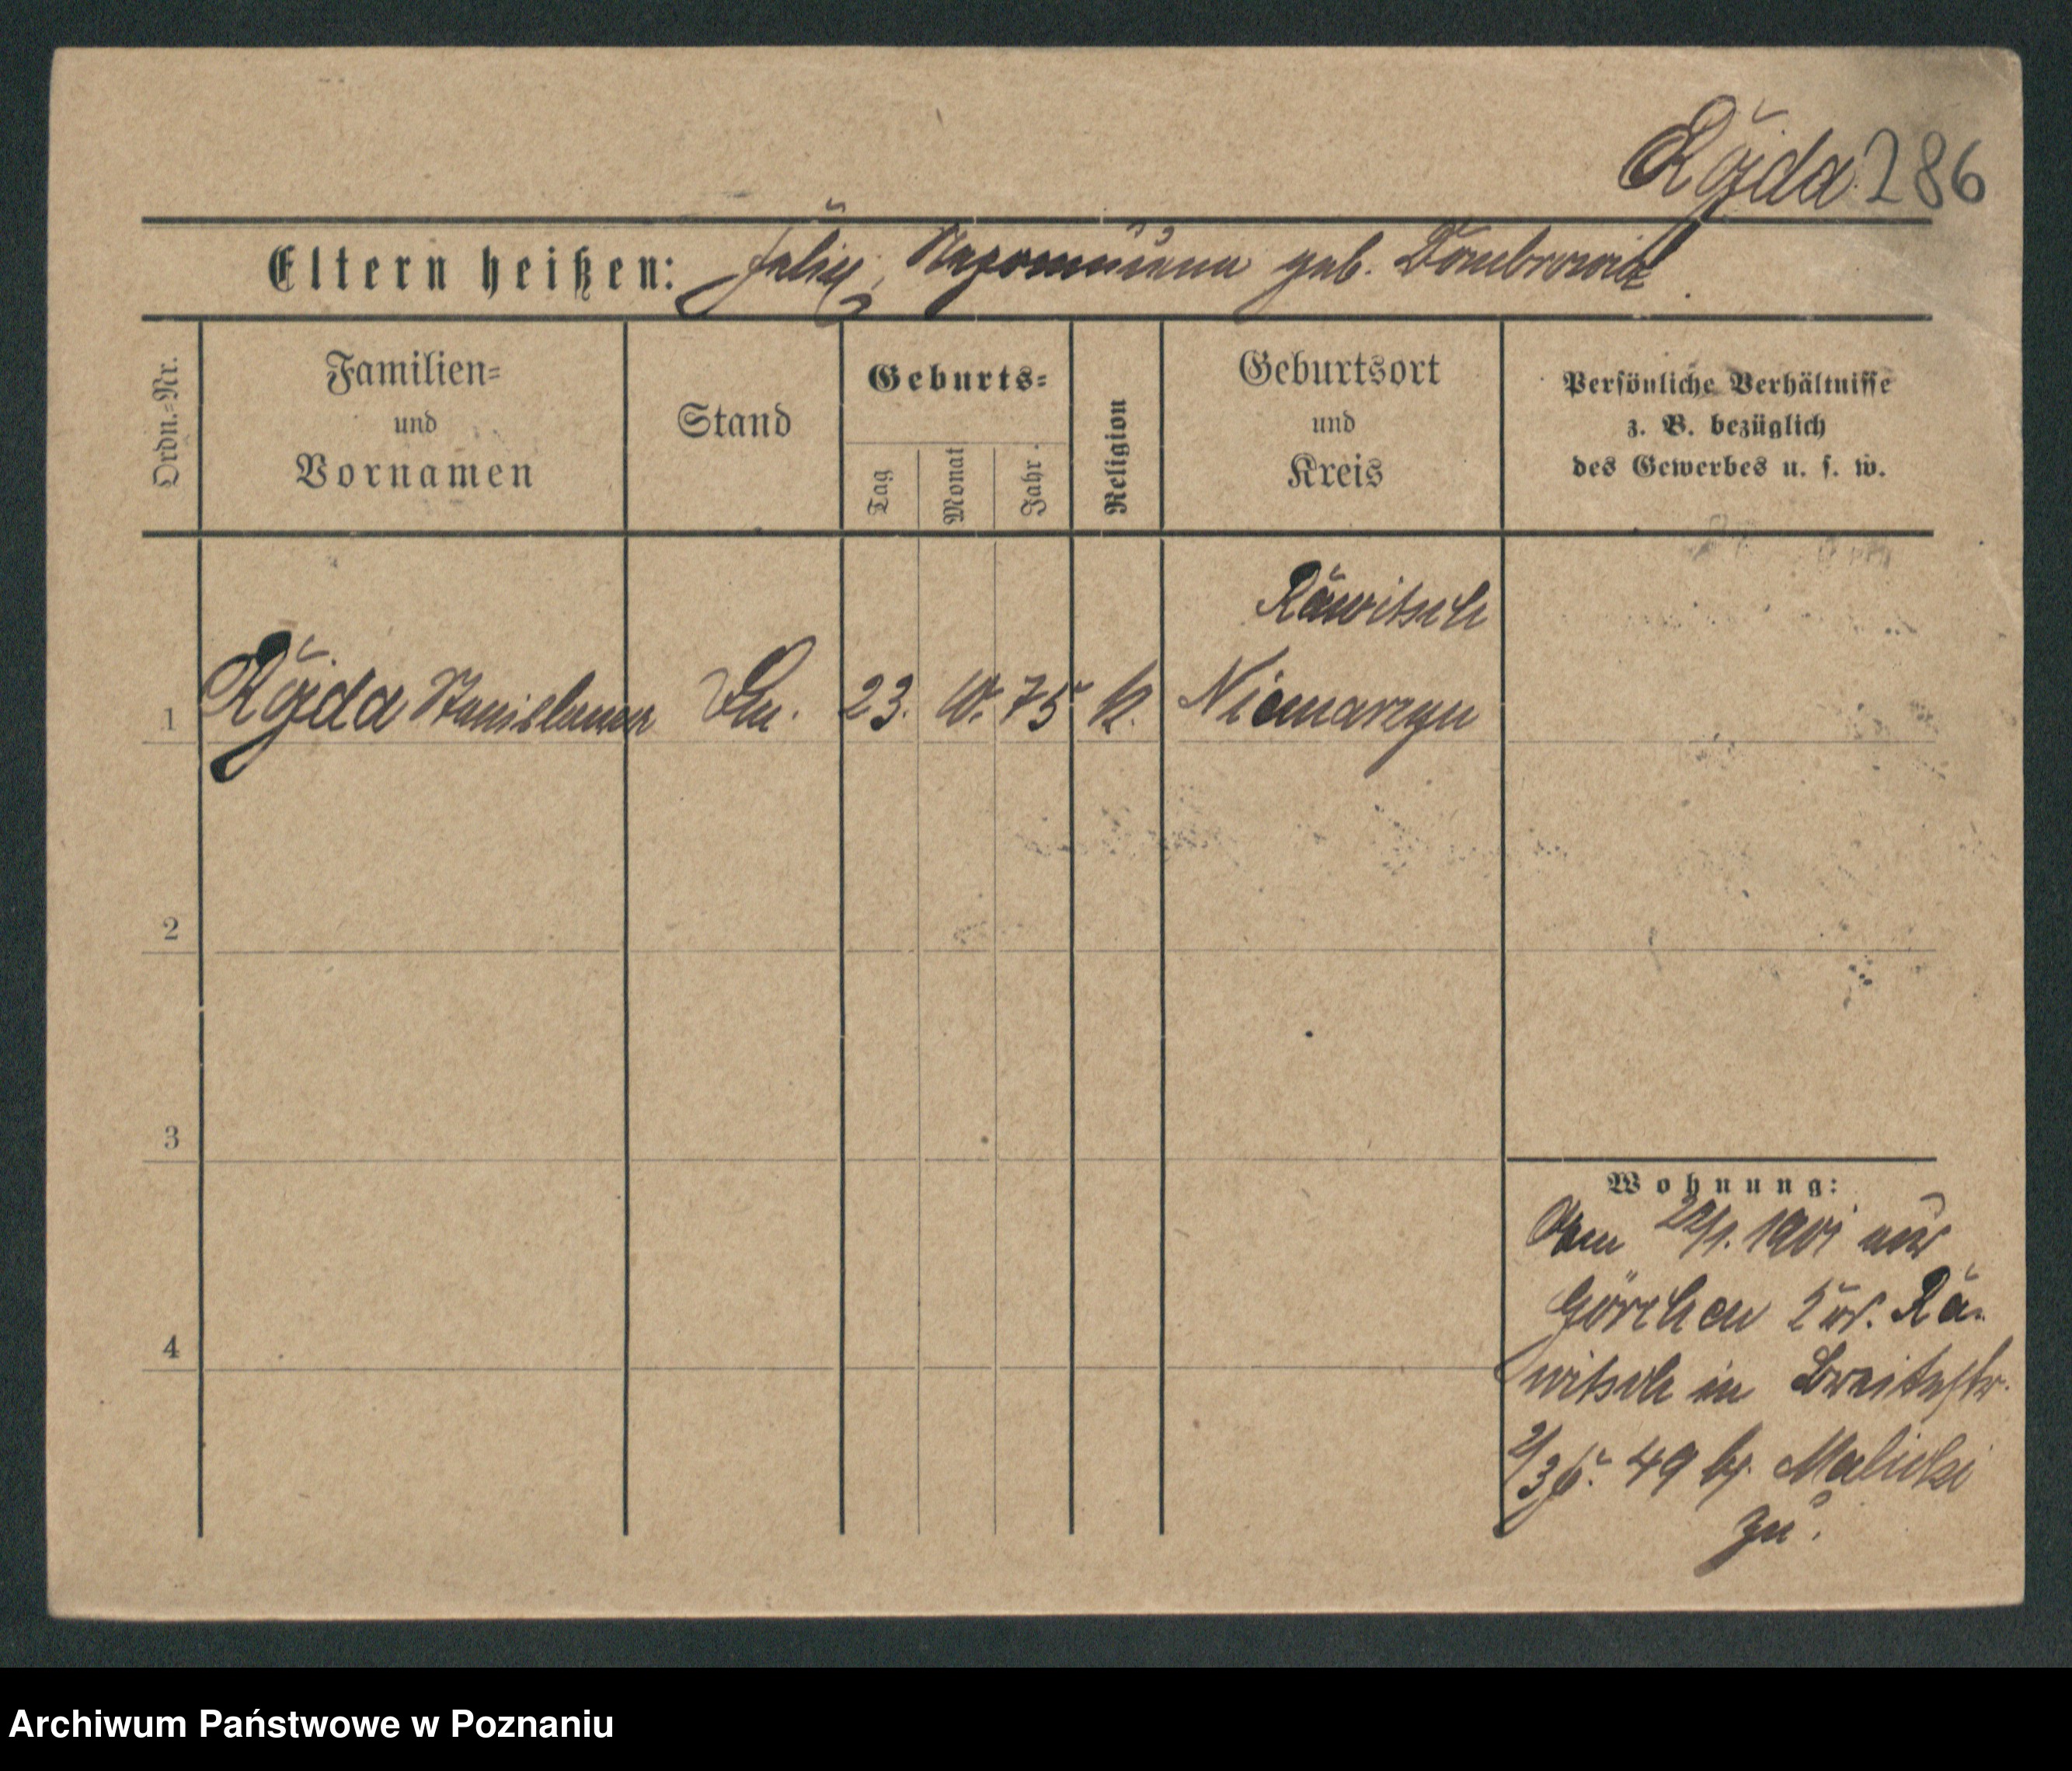 Rajda 286
Eltern heißen: Felix, Nepomucena geb. Dombrowski
Ordn.=Nr.
Familien=
und
Vornamen
Stand
Geburts=
Tag
Monat
Jahr.
Religion
Geburtsort
und
Kreis
Persönliche Verhältnisse
z. B. bezüglich
des Gewerbes u. s. w.
Rawitsch
1 Rajda Stanislaus 23. 10. 75 k. Niemarzyn
2
3
4
Wohnung:
Am 22/1. 1901 aus
Görchen Kr. Ra-
witsch in Breitestr.
49 bei Malicki
zu.
Archiwum Państwowe w Poznaniu